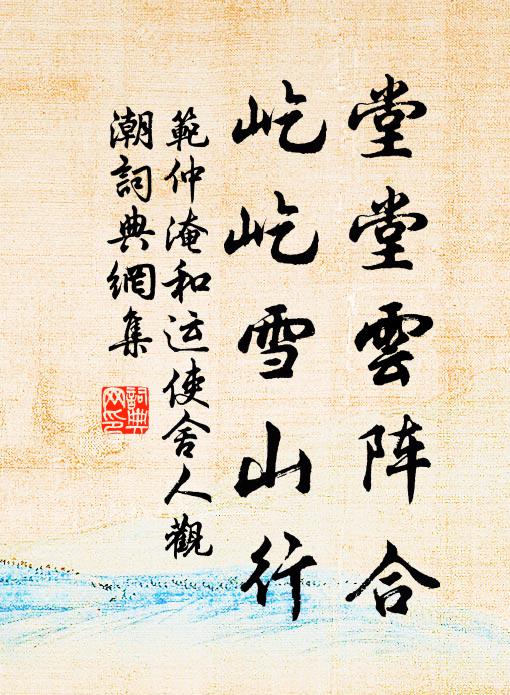 堂堂雲阵合
屹屹雪山行
範仲淹和运使舍人觀
潮詞典網集
詞典网印